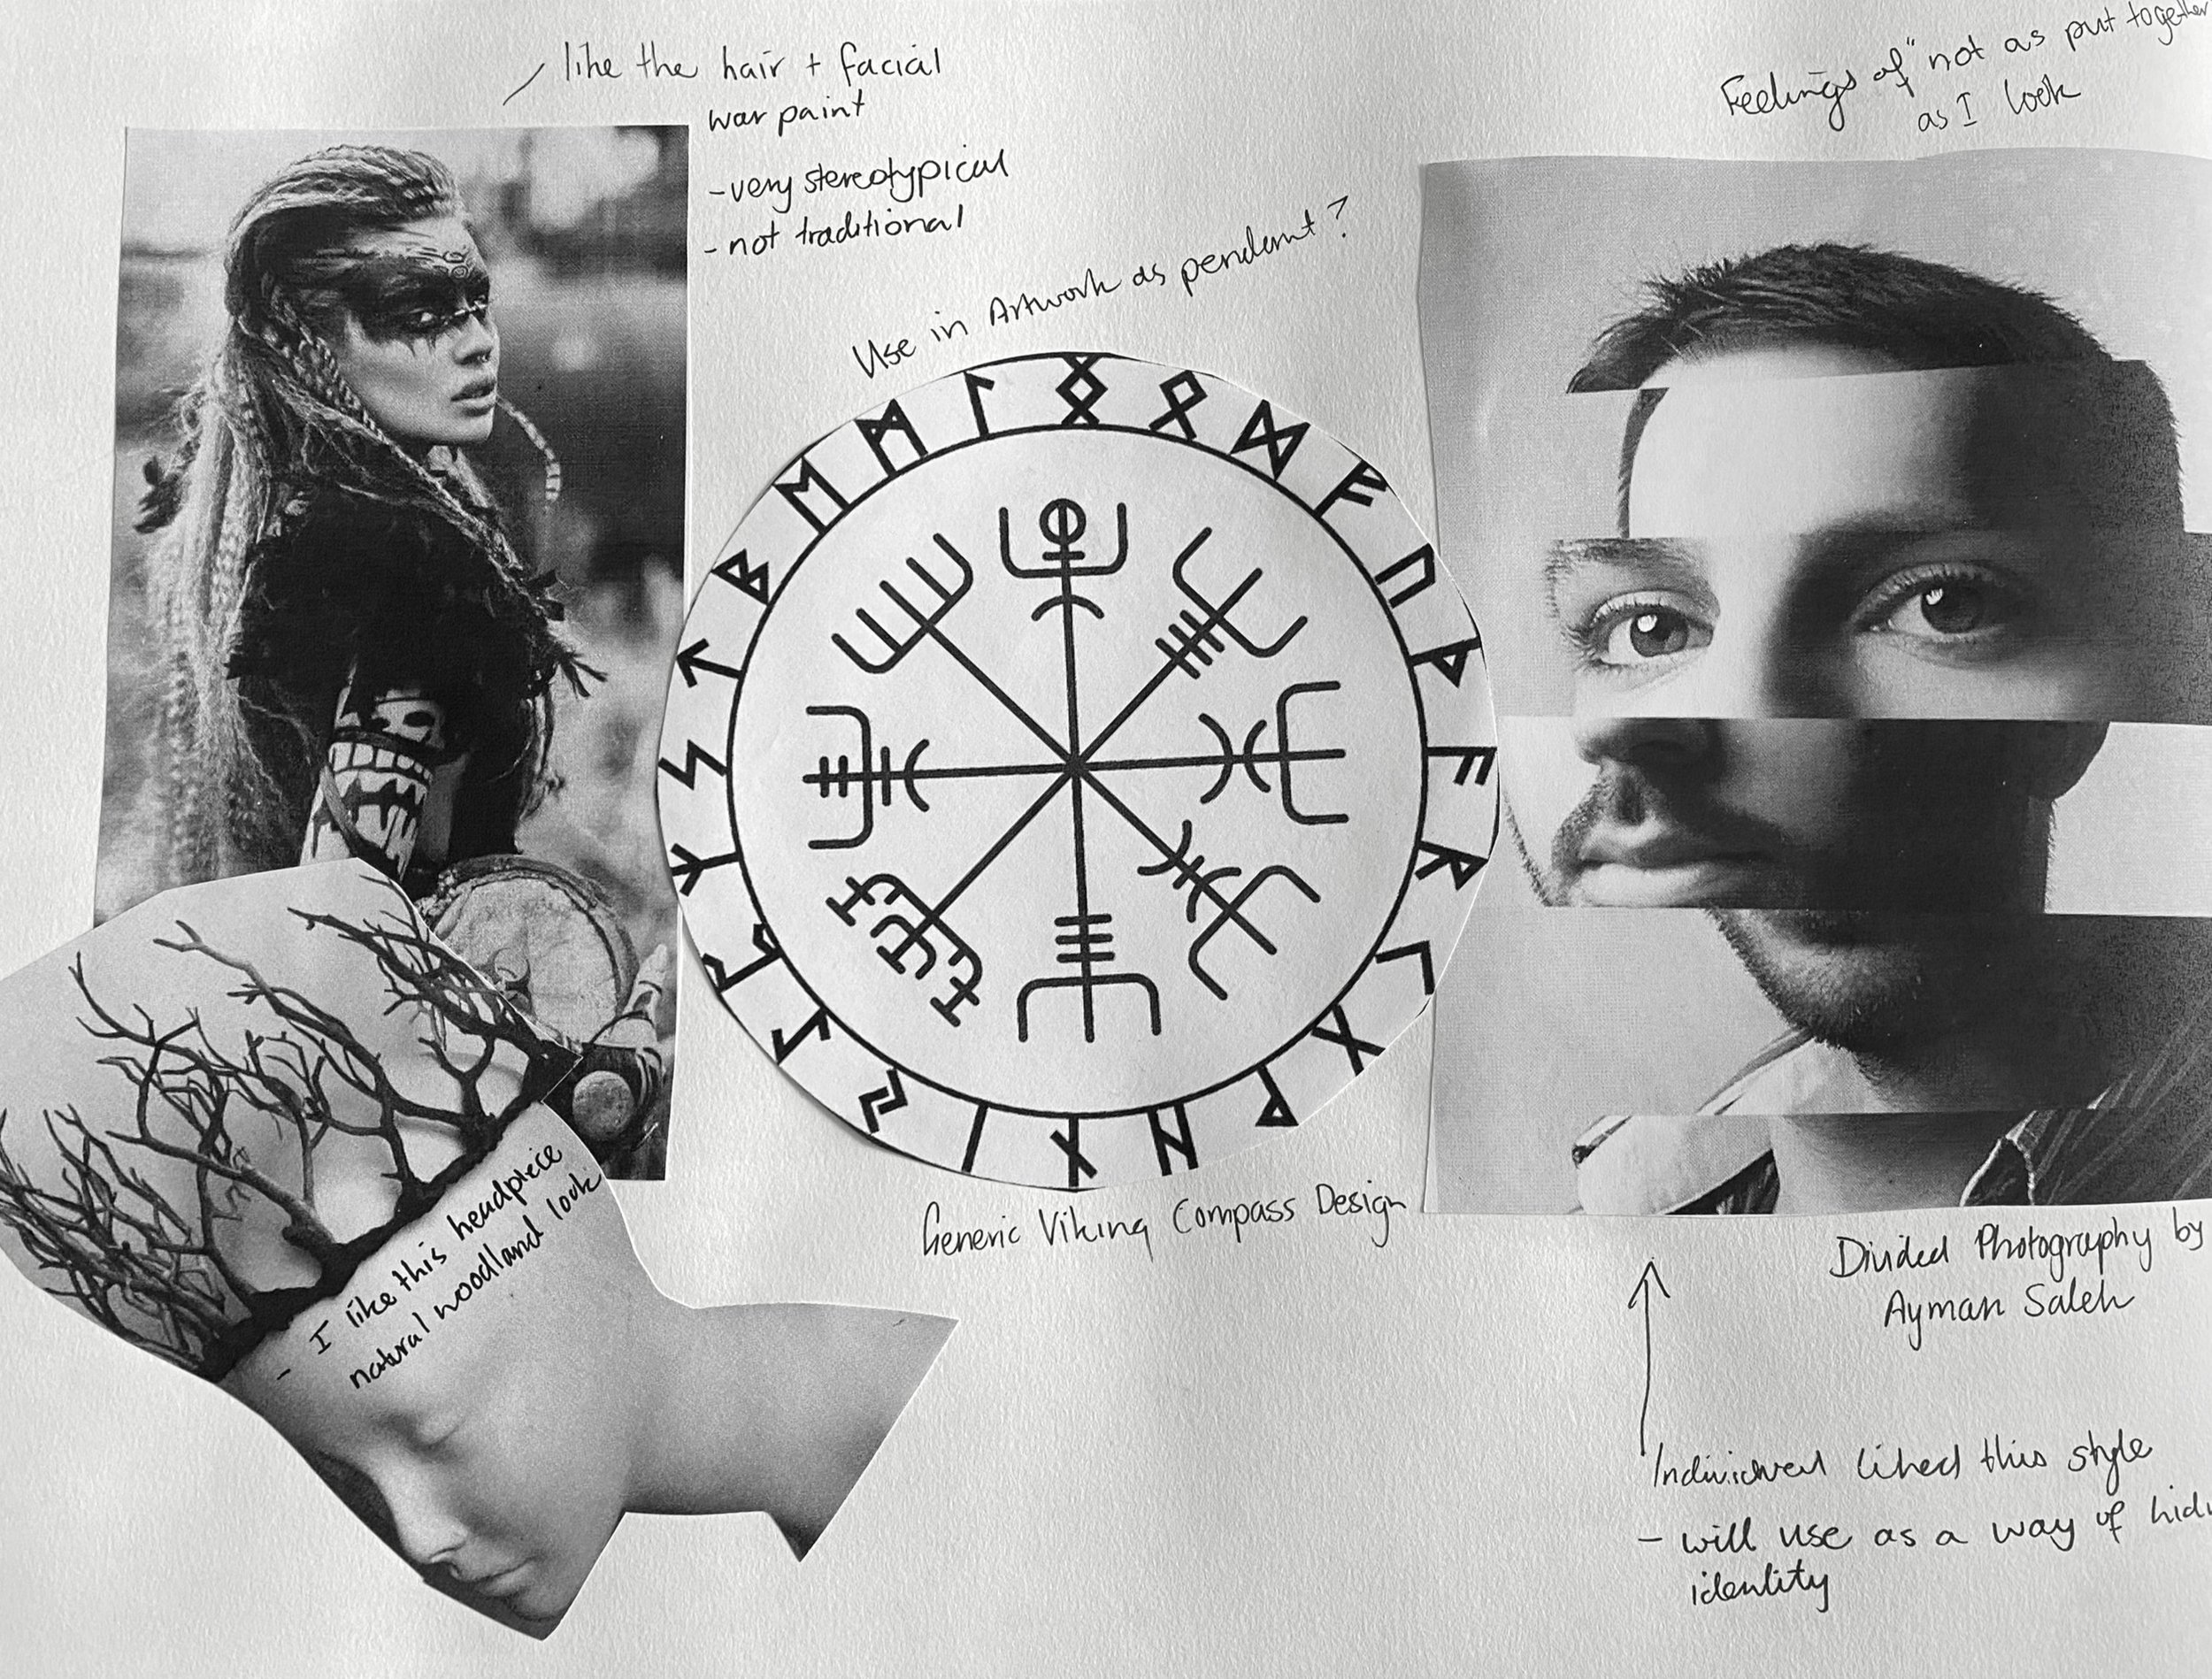 like the hair + facial
war paint
- very stereotypical
- not traditional
Use in Artwork as pendant?
Feelings of "not as put together
as I look
ᛚ ᛝ ᛟ ᛞ ᚠ ᚢ ᚦ ᚨ ᚱ ᚲ ᚷ ᚹ ᚺ ᚾ ᛁ ᛃ ᛇ ᛈ ᛉ ᛊ ᛏ ᛒ ᛖ ᛗ
Generic Viking Compass Design
- I like this headpiece
natural woodland look
Divided Photography by
Ayman Saleh
Individual liked this style
- will use as a way of
identity